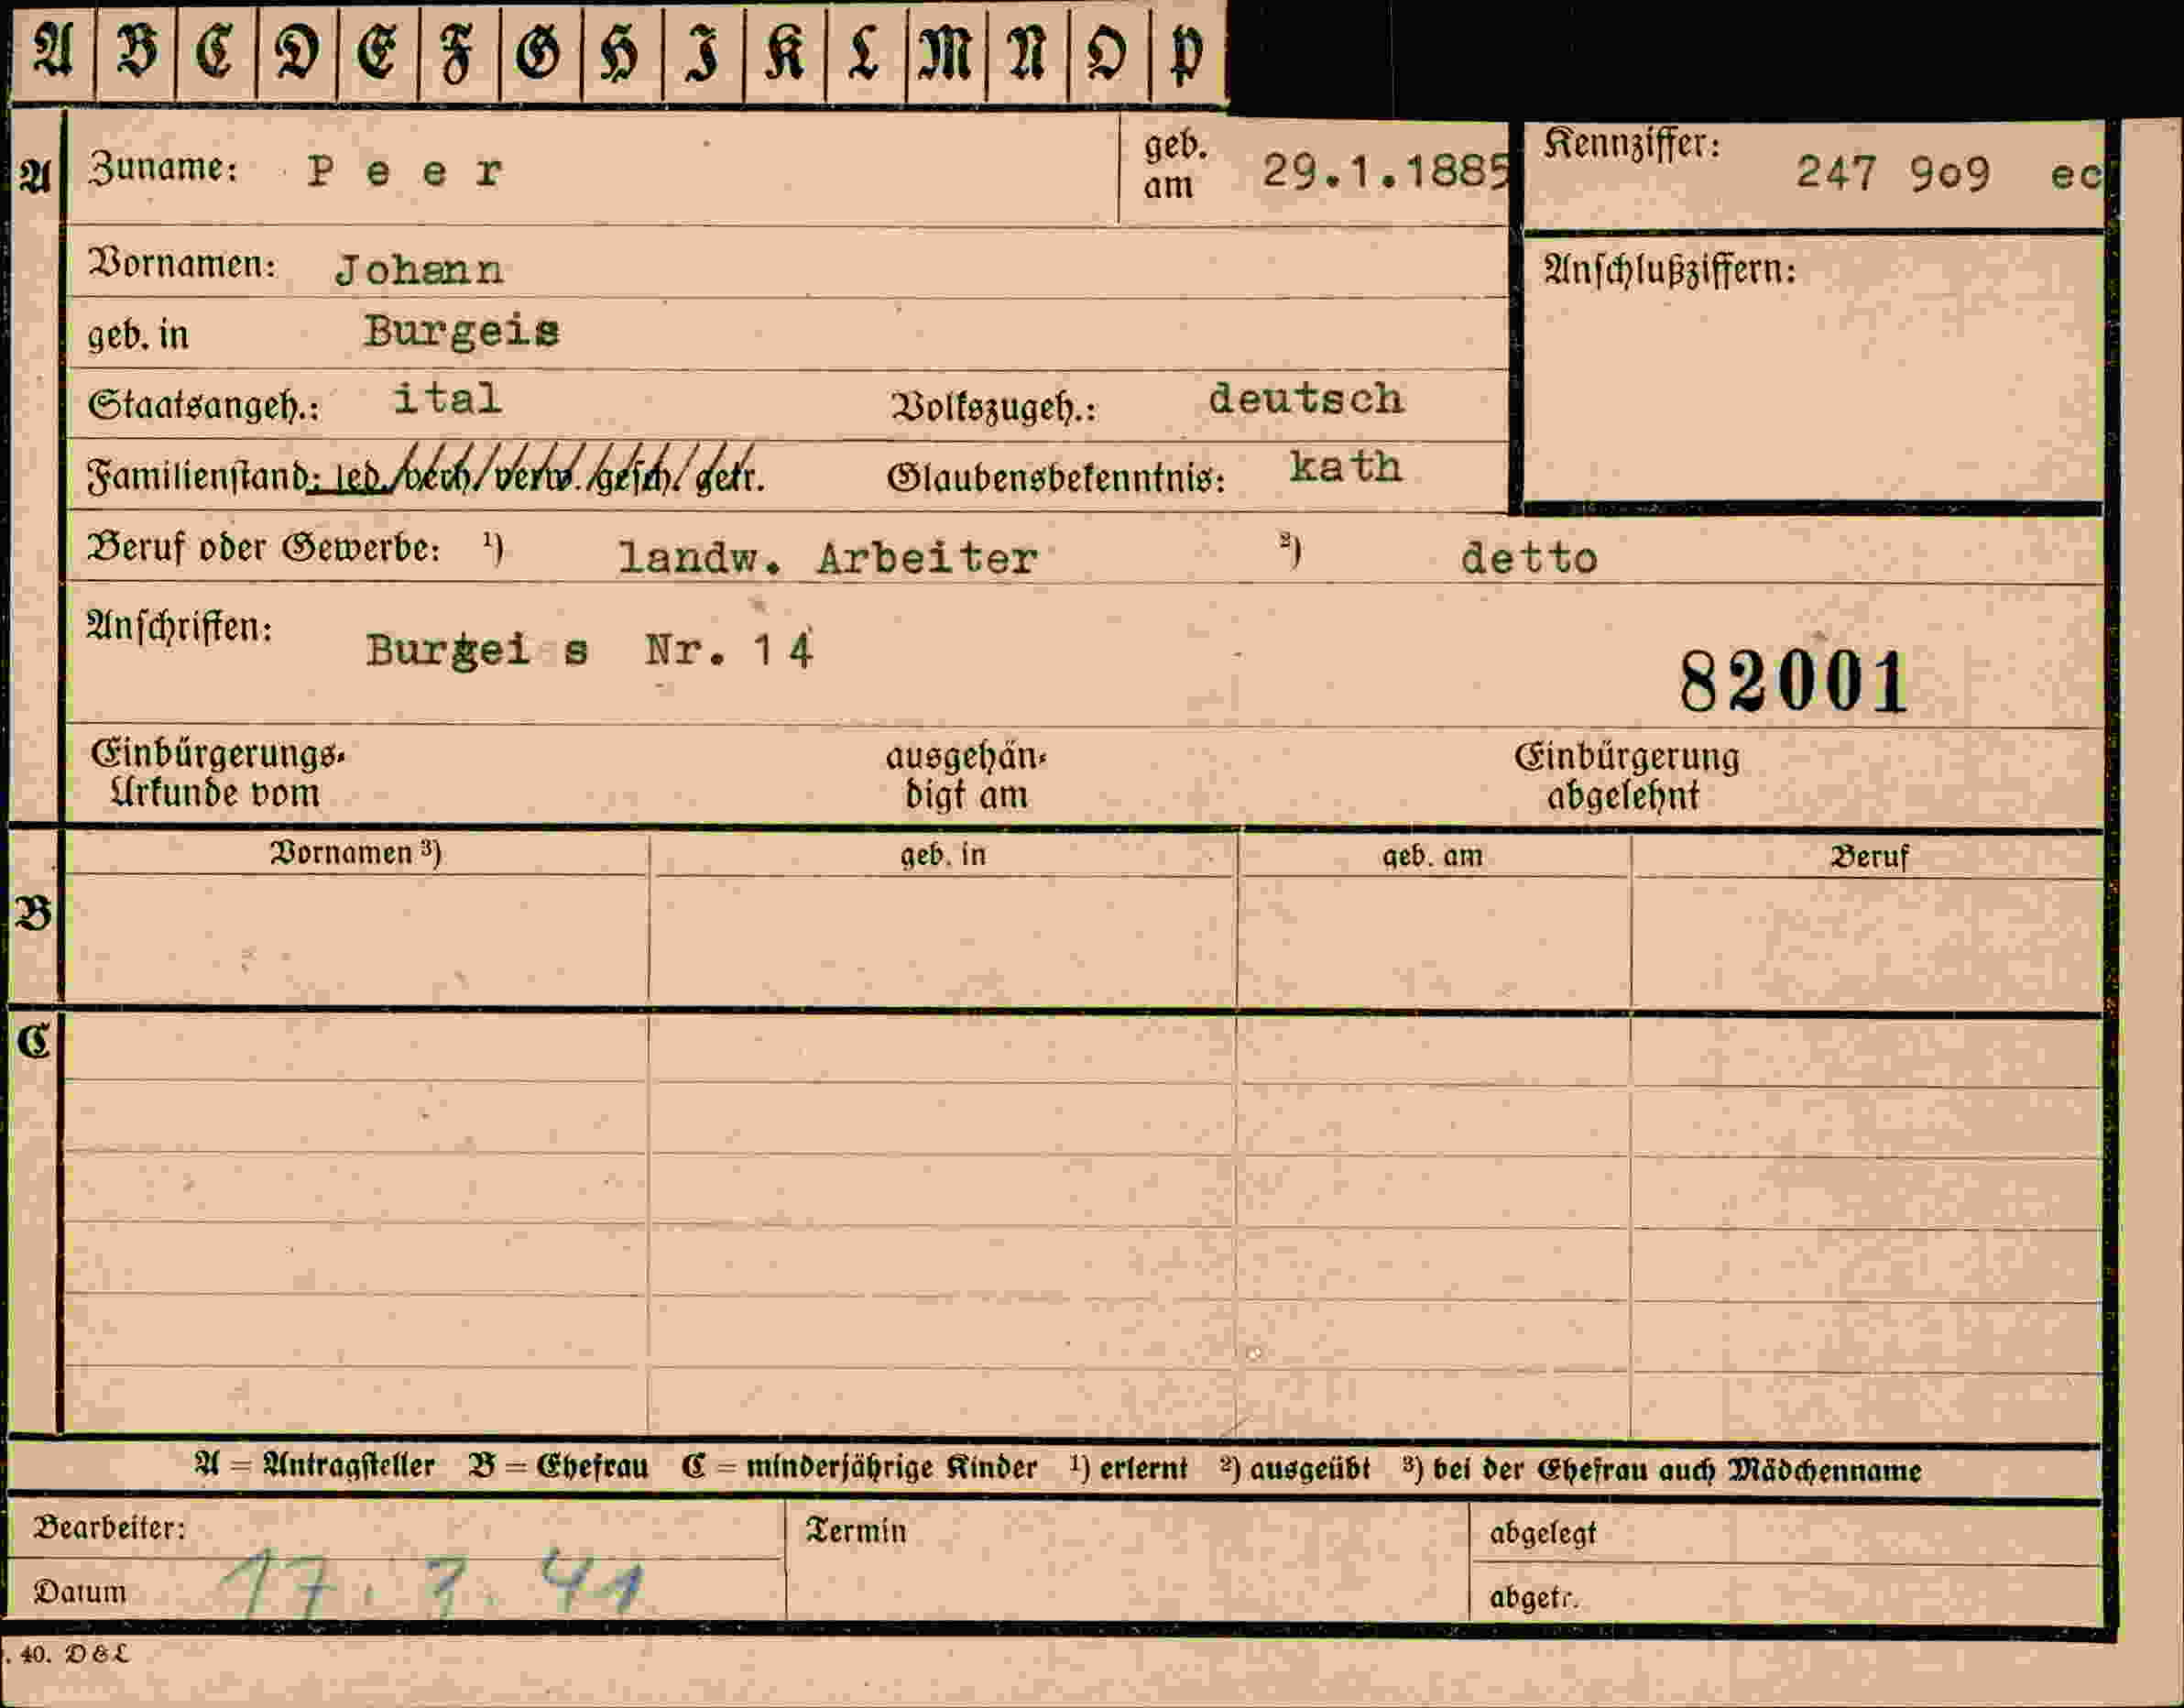 A B C D E F G H I K L M N O P
A Zuname: P e e r geb. am 29.1.1885 Kennziffer: 247 9o9 ec
Vornamen: Johann Anschlußziffern:
geb. in Burgeis
Staatsangeh.: ital Volkszugeh.: deutsch
Familienstand: led./verh/verw./gesch/getr. Glaubensbekenntnis: kath
Beruf oder Gewerbe: ¹) landw. Arbeiter ²) detto
Anschriften: Burgei s Nr. 14
82001
Einbürgerungs- ausgehän- Einbürgerung
Urkunde vom digt am abgelehnt
Vornamen ³) geb. in geb. am Beruf
B
C
A = Antragsteller B = Ehefrau C = minderjährige Kinder ¹) erlernt ²) ausgeübt ³) bei der Ehefrau auch Mädchenname
Bearbeiter: Termin abgelegt
Datum 17. 41 abgetr.
. 40. D & L